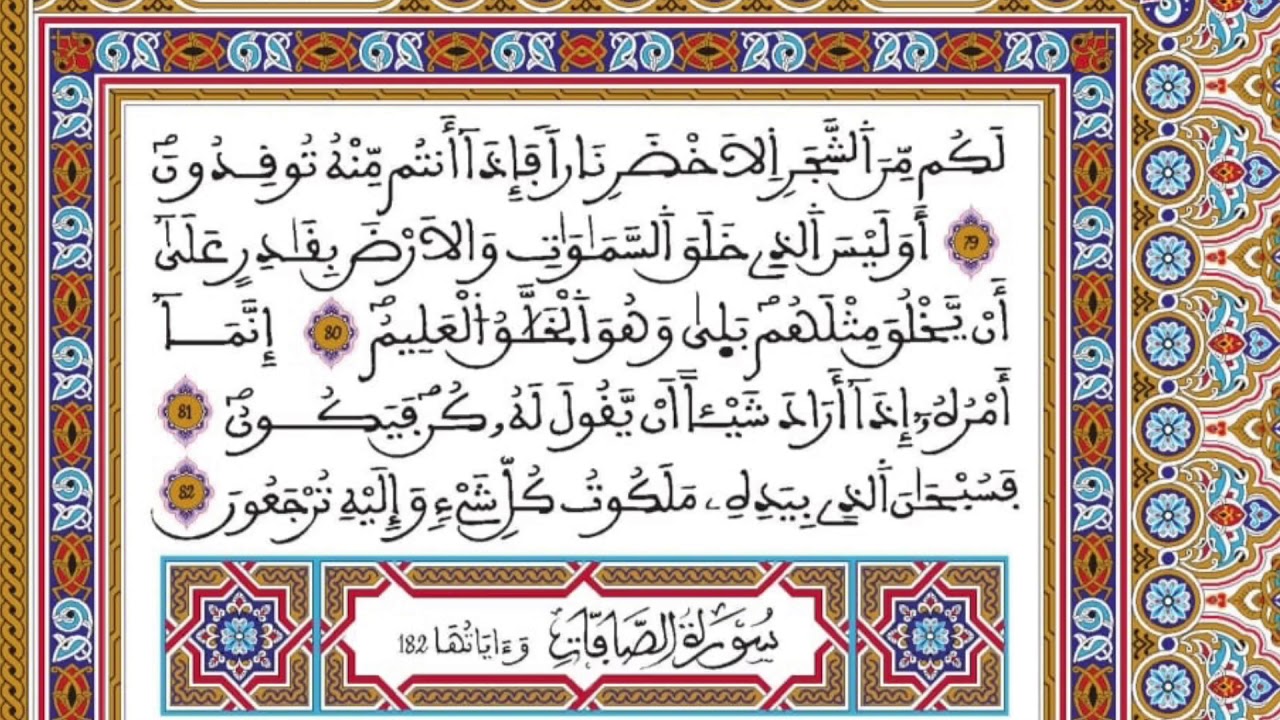 لَكُم مِّنَ اَ۬لشَّجَرِ اِ۬لَاخْضَرِ نَاراٗ فَإِذَآ أَنتُم مِّنْهُ تُوقِدُونَۖ
79 أَوَلَيْسَ اَ۬لذِے خَلَقَ اَ۬لسَّمَٰوَٰتِ وَالَارْضَ بِقَٰدِرٍ عَلَيٰٓ
أَنْ يَّخْلُقَ مِثْلَهُمۖ بَل۪يٰ وَهُوَ اَ۬لْخَلَّٰقُ اُ۬لْعَلِيمُۖ 80 إِنَّمَآ
أَمْرُهُۥٓ إِذَآ أَرَادَ شَيْـٔاً اَنْ يَّقُولَ لَهُۥ كُنۖ فَيَكُونُۖ 81
فَسُبْحَٰنَ اَ۬لذِے بِيَدِهِۦ مَلَكُوتُ كُلِّ شَےْءٖ وَإِلَيْهِ تُرْجَعُونَ 82
سُورَةُ الصَّافَّاتِ وَءَايَاتُهَا 182